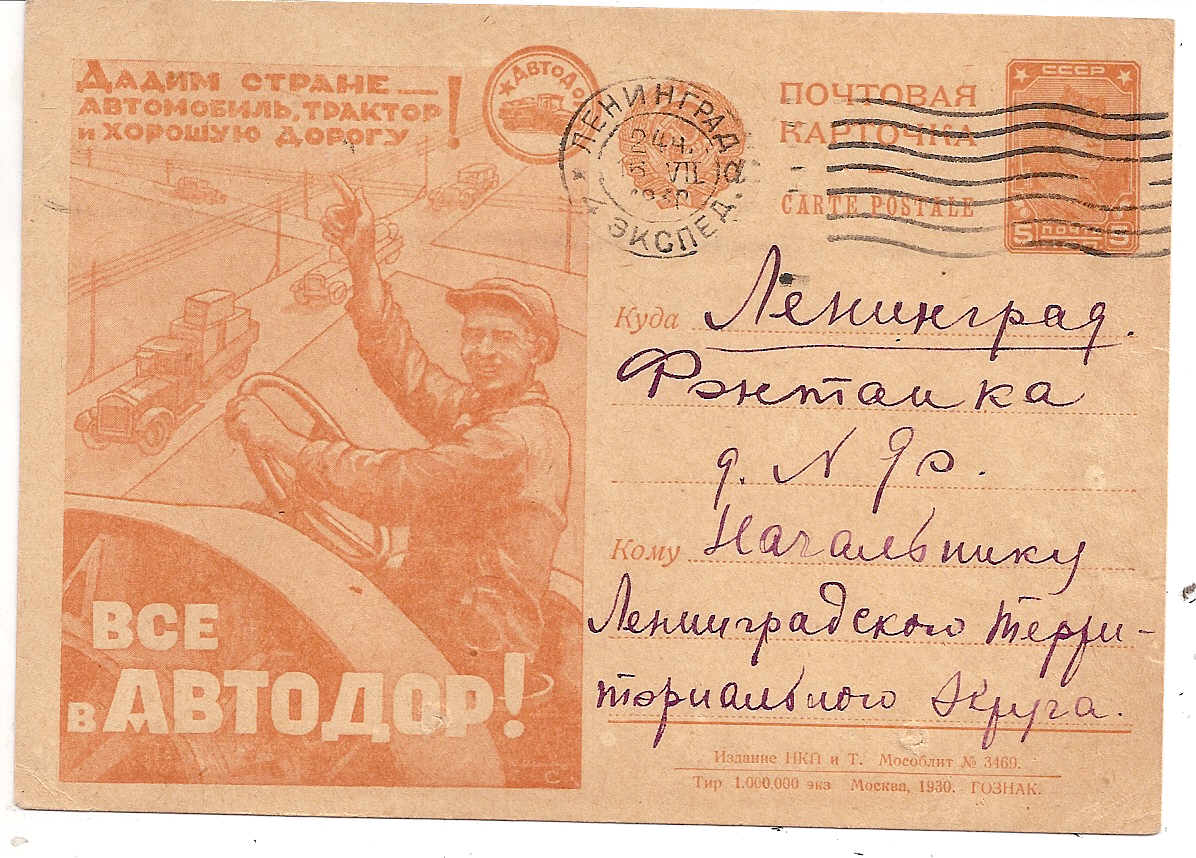 Дадим стране —
автомобиль, трактор
и хорошую дорогу!
АВТОДОР
ЛЕНИНГРАД
4 ЭКСПЕД.
VII
ПОЧТОВАЯ
КАРТОЧКА
CARTE POSTALE
СССР
5 ПОЧТА 5
Куда Ленинград.
Фонтанка
д. N
Кому Начальнику
Ленинградского Терри-
ториального Округа.
ВСЕ
в АВТОДОР!
Издание НКП и Т. Мособлит № 3469.
Тир 1.000.000 экз Москва, 1930. ГОЗНАК.